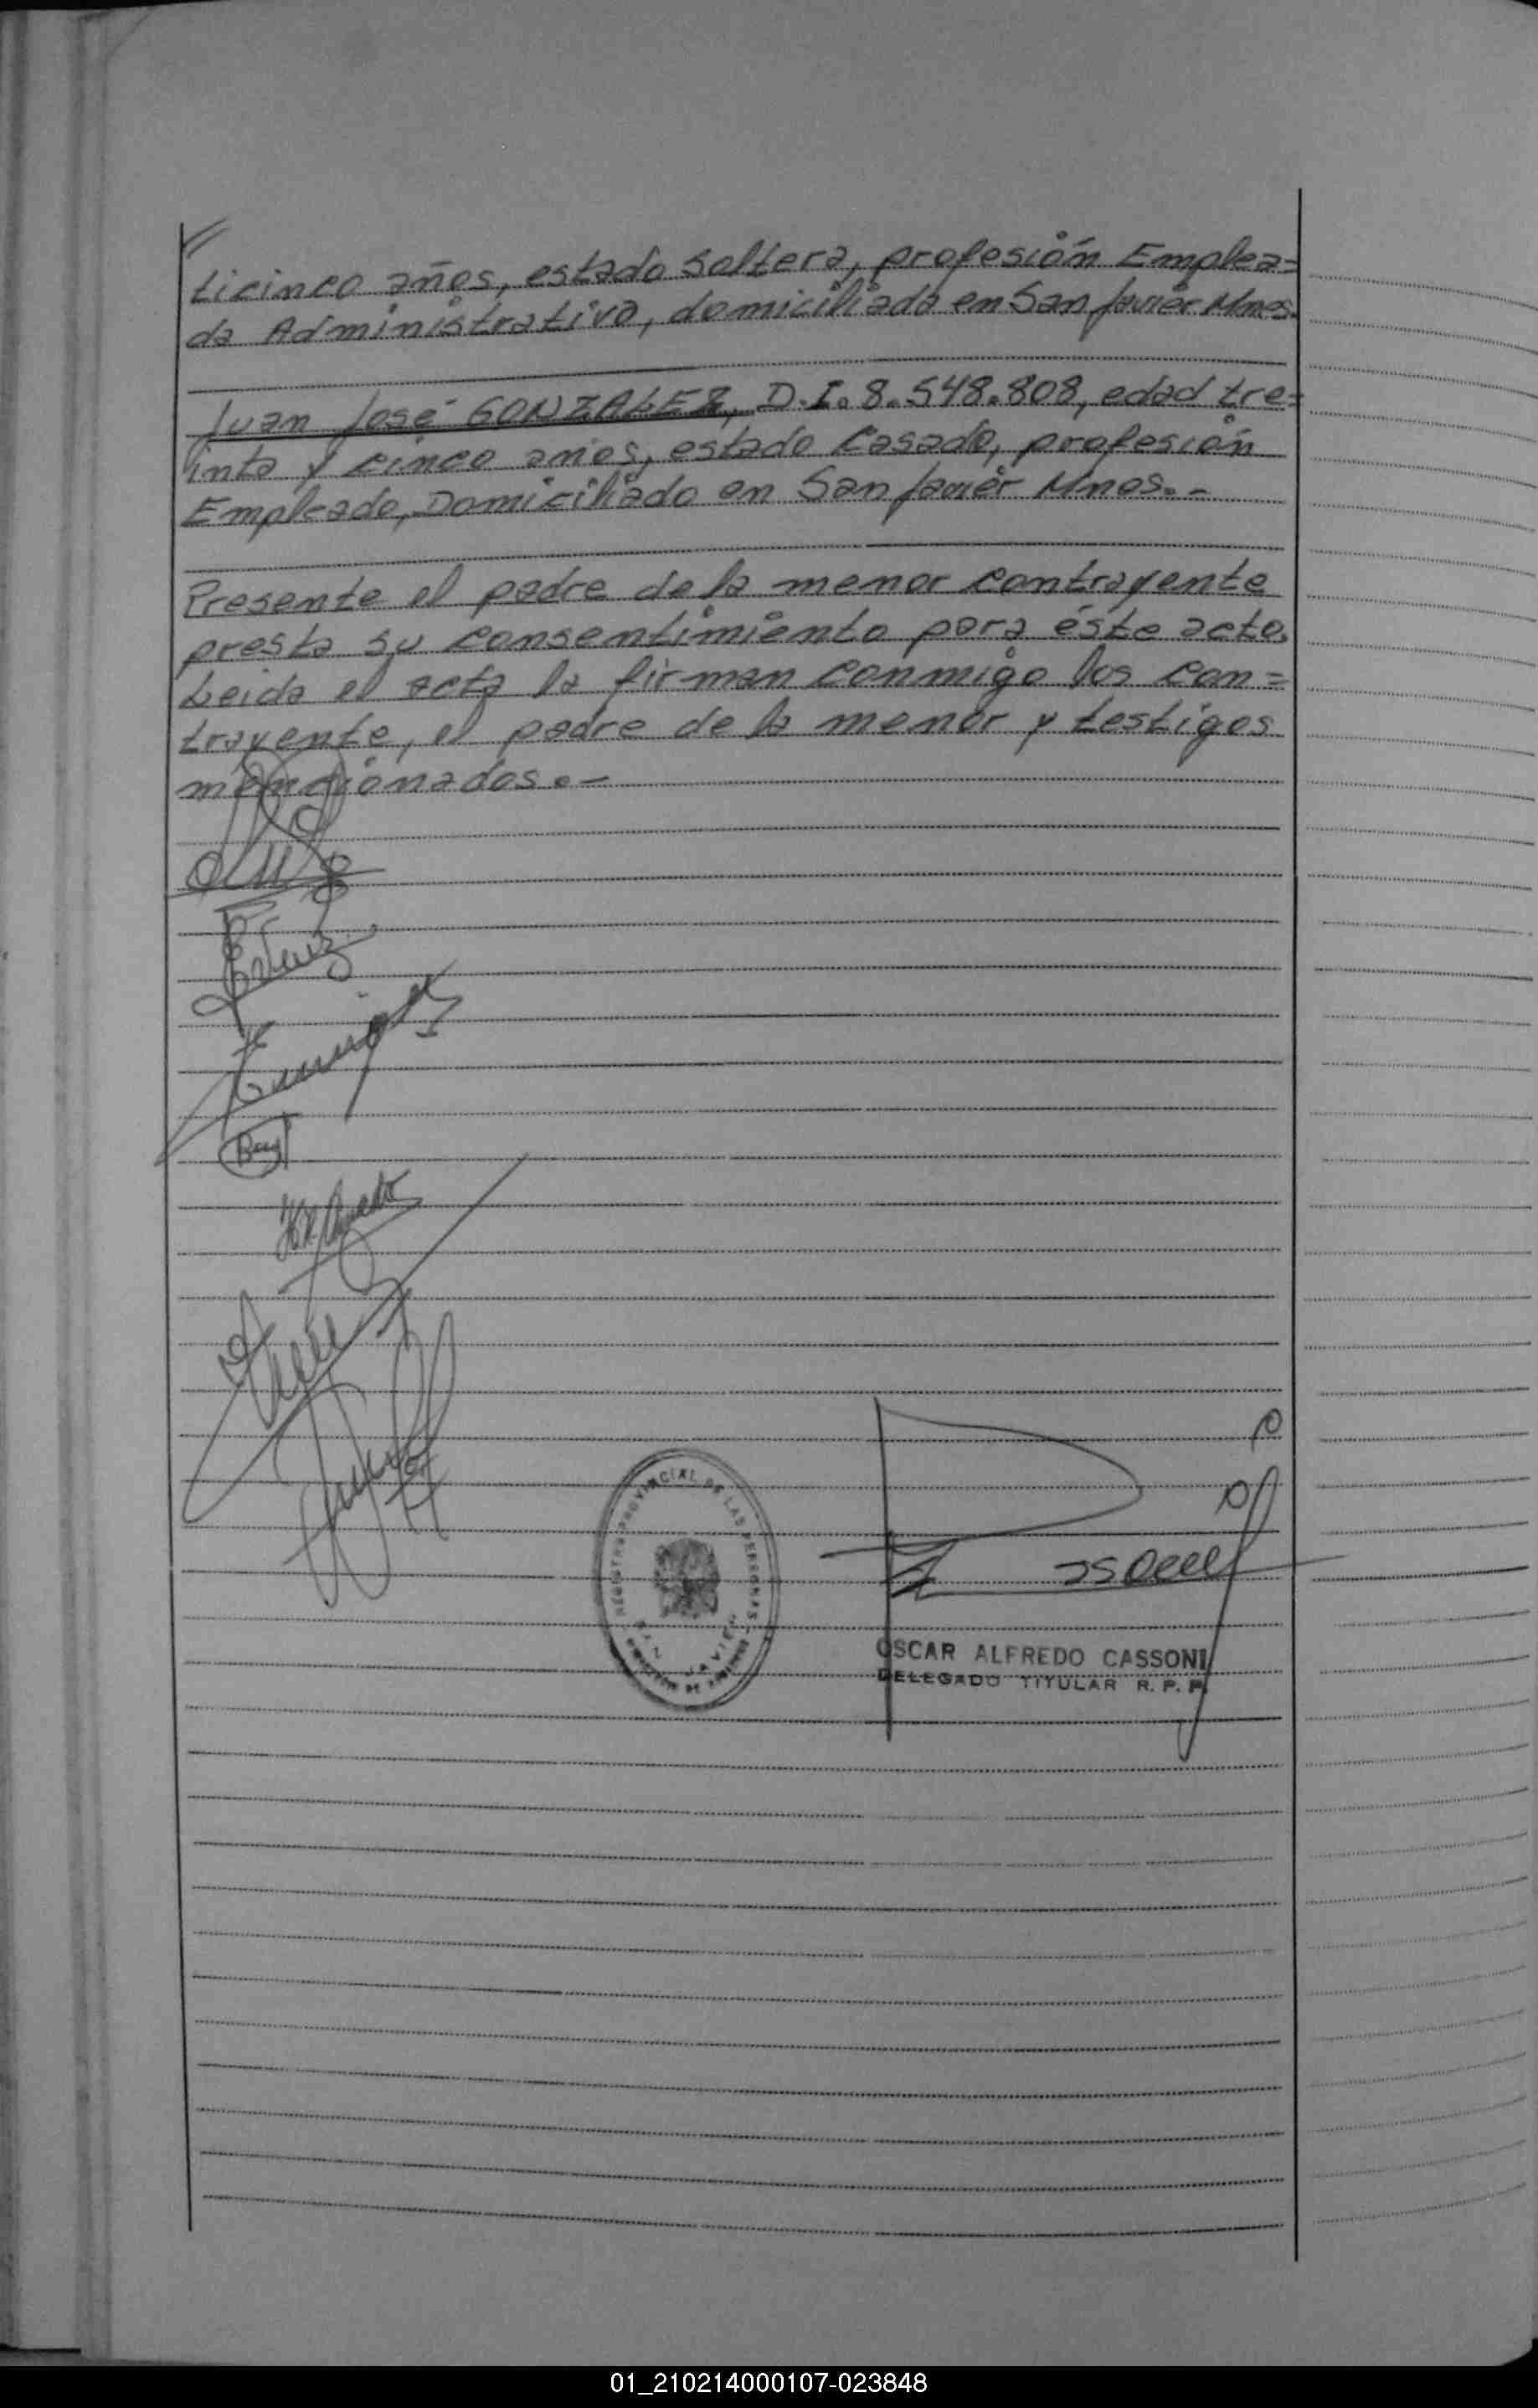 ticinco años, estado soltera, profesión Emplea=
da Administrativa, domiciliada en San Javier Mnes.
Juan José GONZALEZ, D.I. 8.548.808, edad tre=
inta y cinco años, estado casado, profesión
Empleado, Domiciliado en San Javier Mnes.-
Presente el padre de la menor contrayente
presta su consentimiento para éste acto.
Leida el acta la firman conmigo los con=
trayente, el padre de la menor y testigos
mencionados.-
REGISTRO PROVINCIAL DE LAS PERSONAS
SAN JAVIER
OSCAR ALFREDO CASSONI
DELEGADO TITULAR R. P. P.
01_210214000107-023848